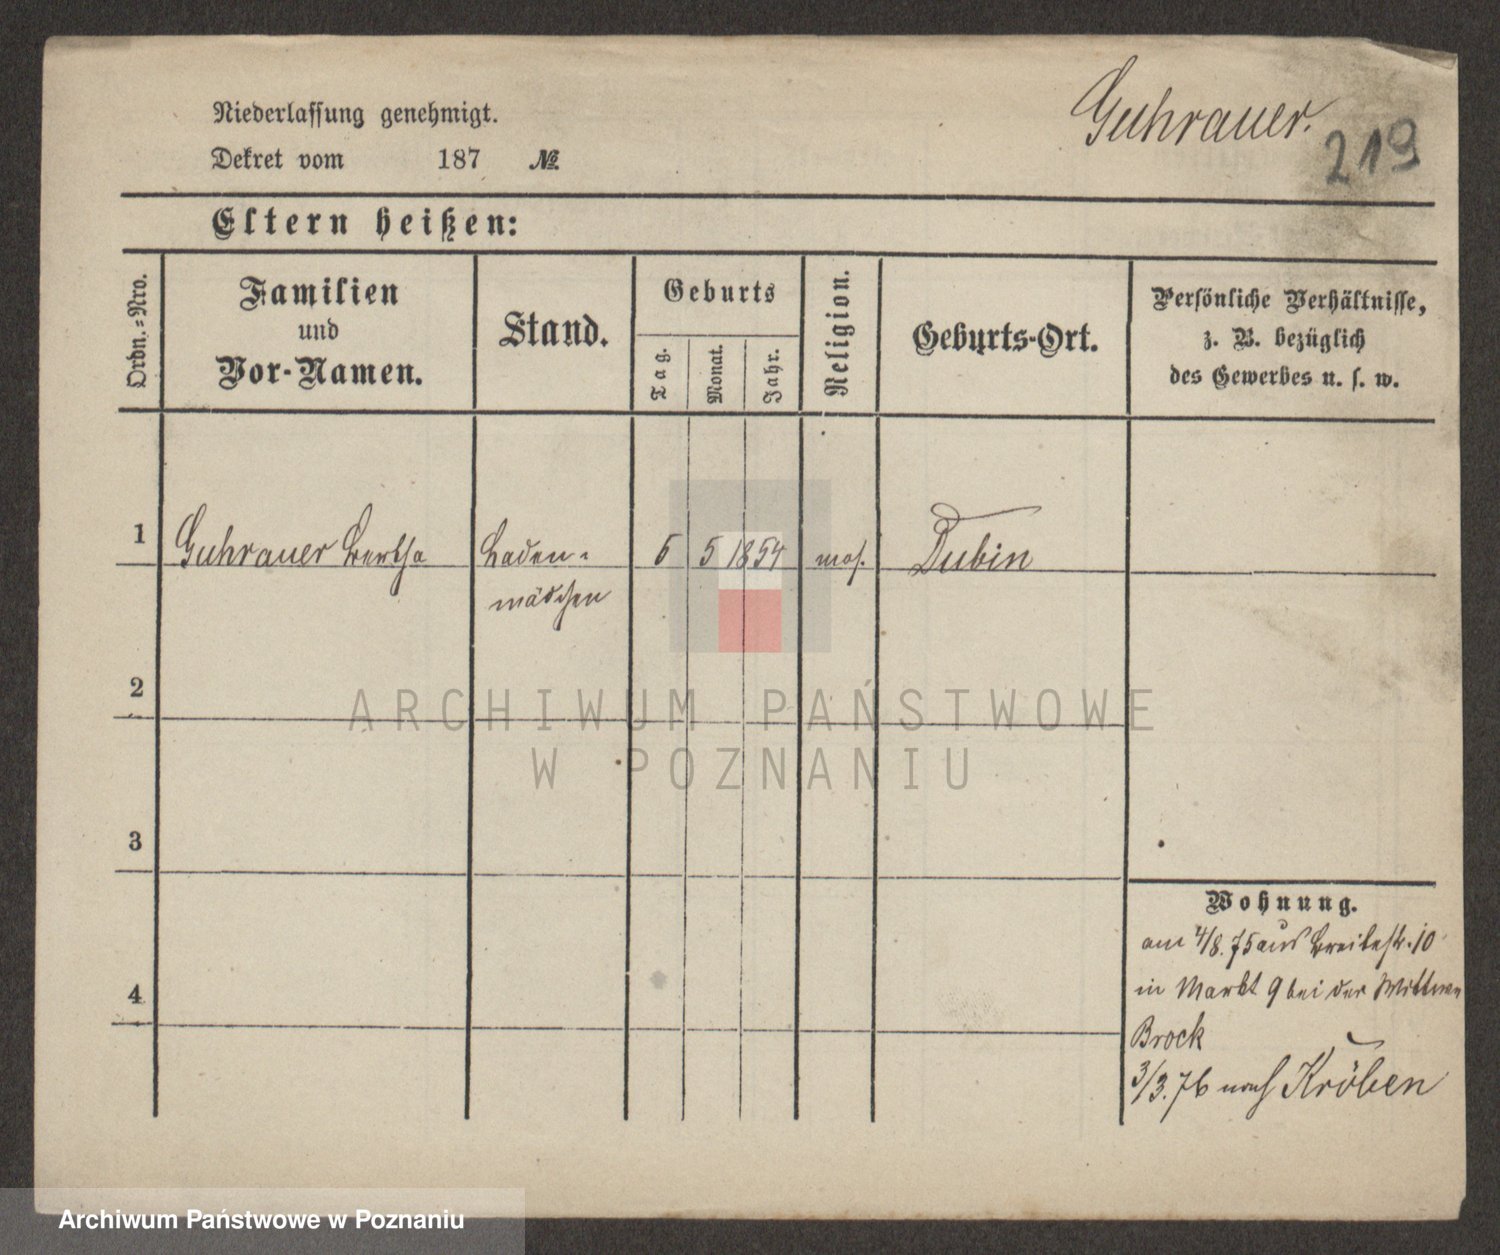 Niederlassung genehmigt.
Guhrauer.
219
Dekret vom 187 №
Eltern heißen:
Ordn.=Nro.
Familien
und
Vor-Namen.
Stand.
Geburts
Tag.
Monat.
Jahr.
Religion.
Geburts-Ort.
Persönliche Verhältnisse,
z. B. bezüglich
des Gewerbes u. s. w.
1 Guhrauer Bertha Laden= 5 5 1854 mos. Dubin
mädchen
2
3
4
Wohnung.
am 4/8. 75 aus Breitestr. 10
in Markt 9 bei der Wittwe
Brock
3/3. 76 nach Kröben
ARCHIWUM PAŃSTWOWE
W POZNANIU
Archiwum Państwowe w Poznaniu